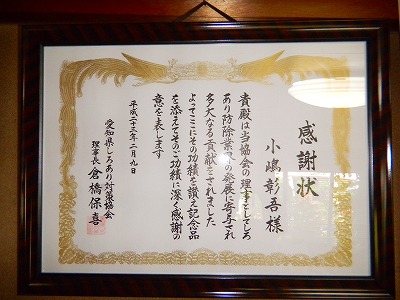 感謝状
小嶋彰吾様
貴殿は当協会の理事としてしろ
あり防除業界の発展に寄与され
多大なる貢献をされました
よってここにその功績を讃え記念品
を添えてそのご功績に深く感謝の
意を表します
平成二十三年二月九日
愛知県しろあり対策協会
理事長 倉橋保喜